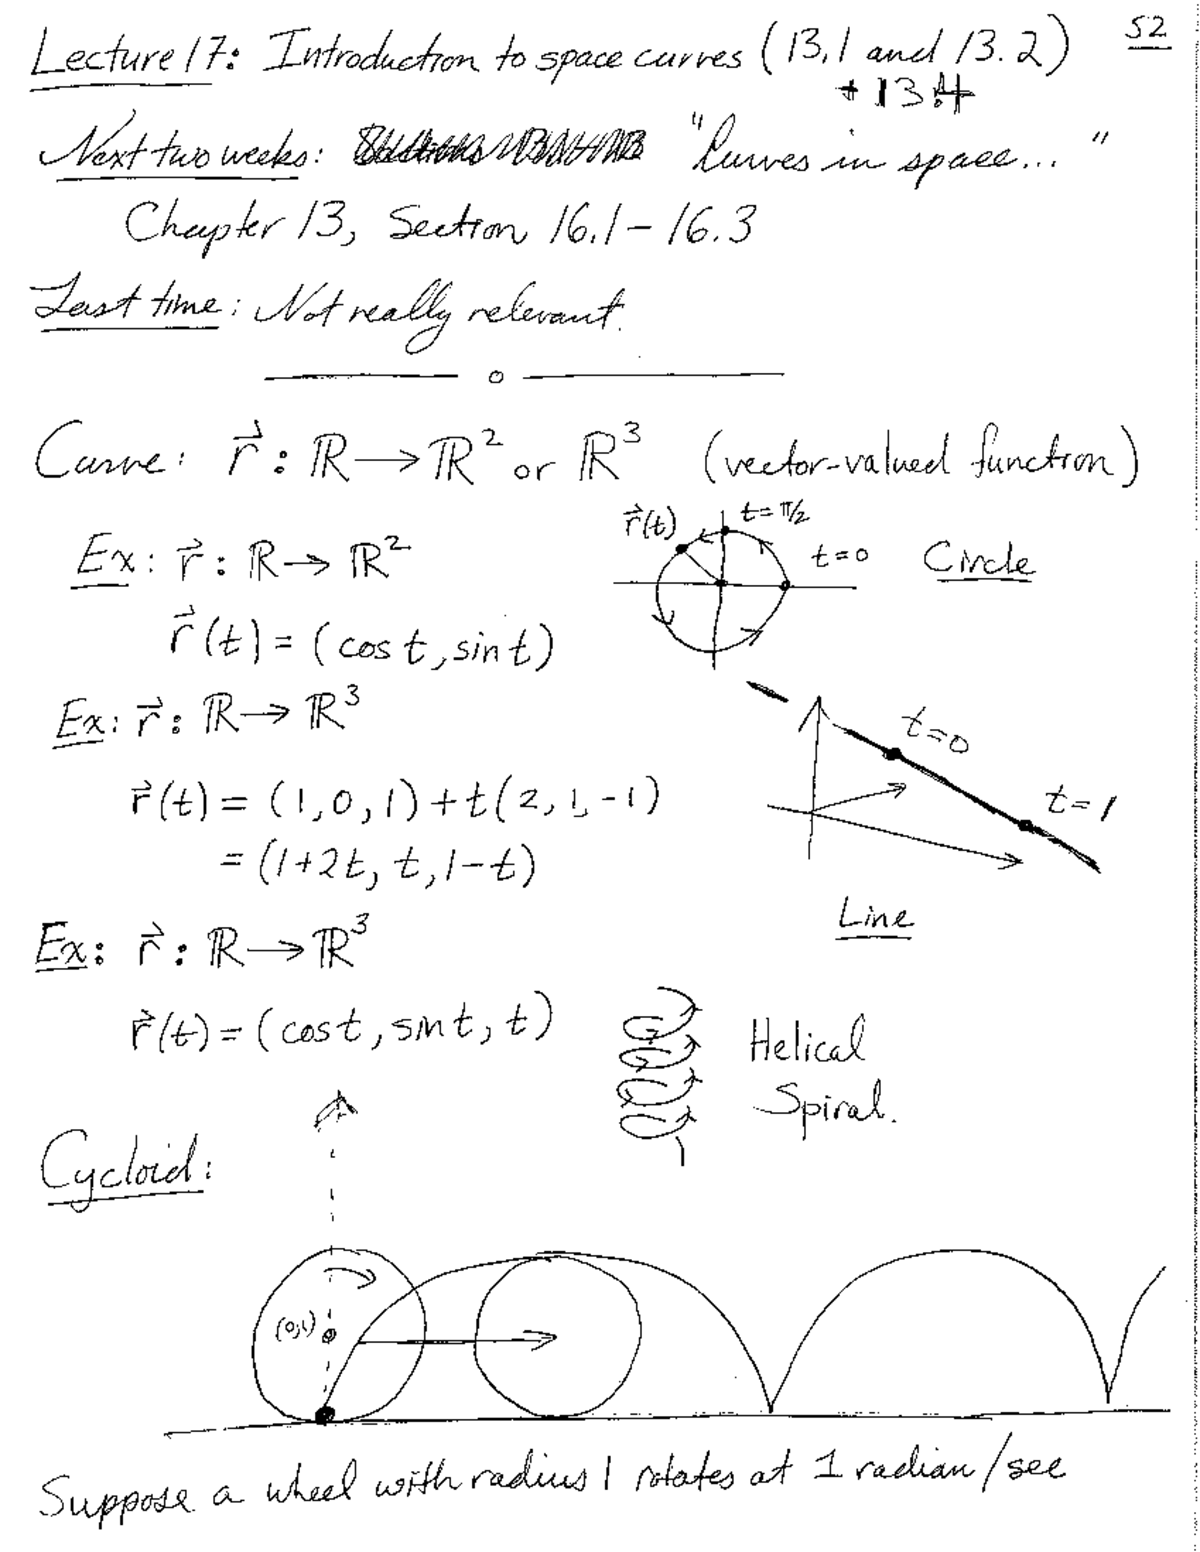 52
Lecture 17: Introduction to space curves (13.1 and 13.2)
+ 13.4
Next two weeks: "Curves in space... "
Chapter 13, Section 16.1 – 16.3
Last time: Not really relevant.
Curve: r⃗ : ℝ → ℝ² or ℝ³ (vector-valued function)
Ex: r⃗ : ℝ → ℝ²
r⃗(t) t=π/2
t=0 Circle
r⃗(t) = (cos t, sin t)
Ex: r⃗ : ℝ → ℝ³
t=0
r⃗(t) = (1,0,1) + t(2,1,-1)
t=1
= (1+2t, t, 1-t)
Line
Ex: r⃗ : ℝ → ℝ³
r⃗(t) = (cos t, sin t, t)
Helical
Spiral.
Cycloid:
(0,1)
Suppose a wheel with radius 1 rotates at 1 radian/sec